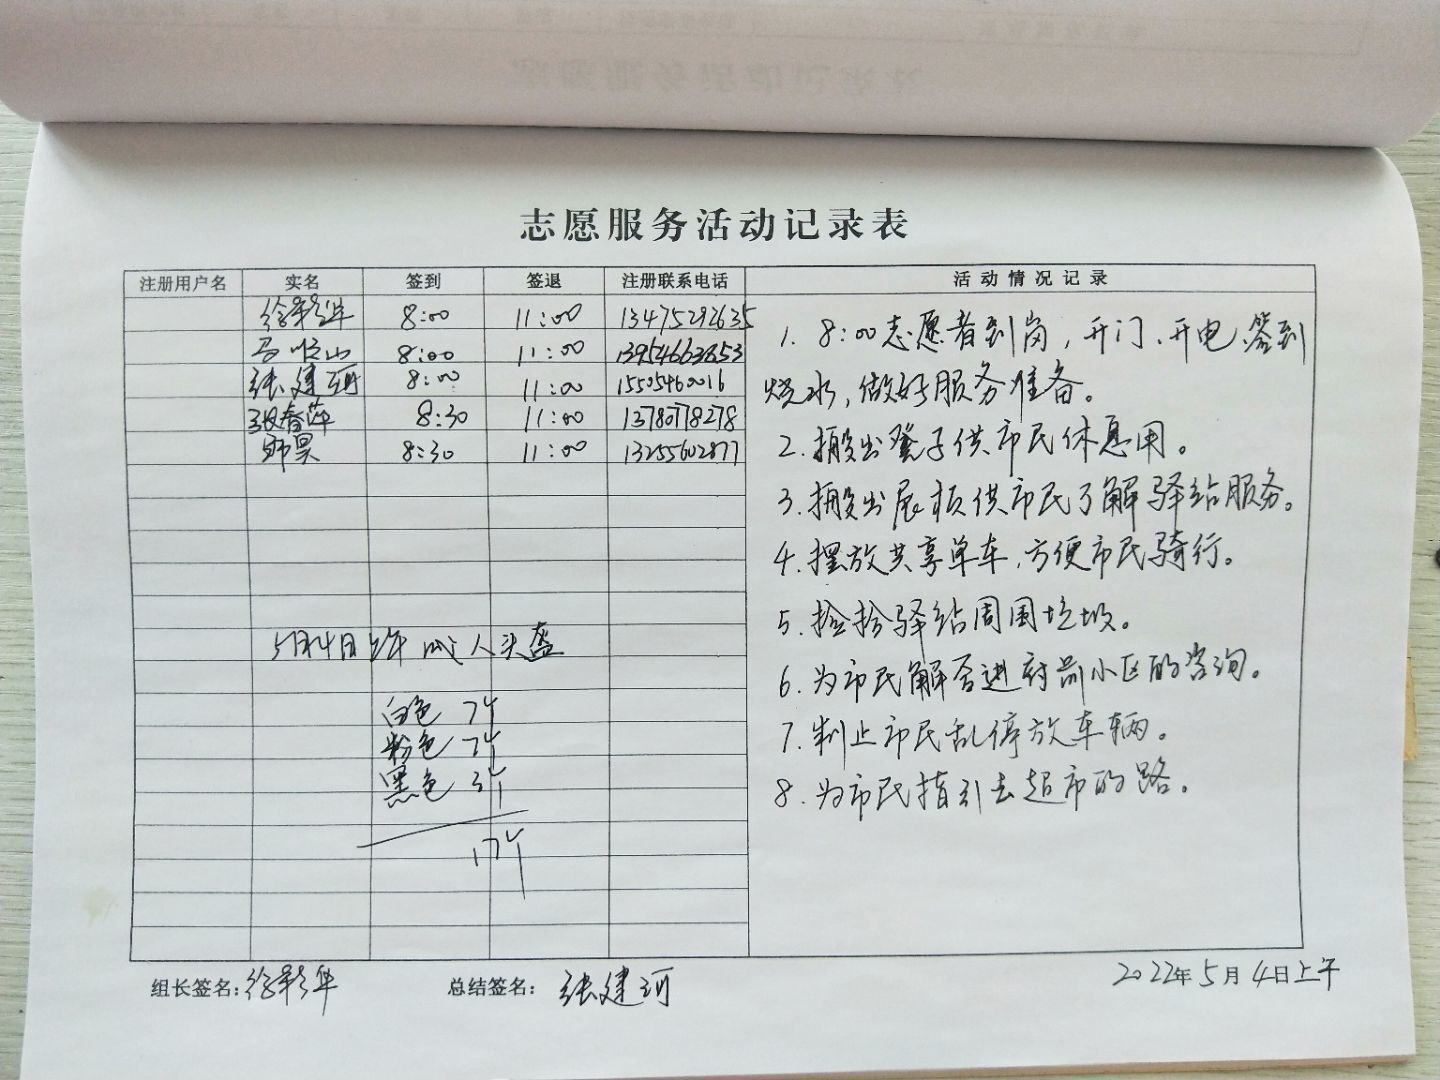 志愿服务活动记录表
注册用户名 实名 签到 签退 注册联系电话 活动情况记录
徐彩华 8:00 11:00 13475292635
马顺山 8:00 11:00 13954663853
张建珂 8:00 11:00 15505460016
张春萍 8:30 11:00 13780778278
郭昊 8:30 11:00 13255602877
1. 8:00志愿者到岗，开门、开电、签到
烧水，做好服务准备。
2. 搬出凳子供市民休息用。
3. 搬出展板供市民了解驿站服务。
4. 摆放共享单车，方便市民骑行。
5. 捡拾驿站周围垃圾。
6. 为市民解答进府前小区的咨询。
7. 制止市民乱停放车辆。
8. 为市民指引去超市的路。
5月4日上午 成人头盔
白色 7个
粉色 7个
黑色 3个
17个
组长签名：徐彩华 总结签名：张建珂 2022年5月4日上午